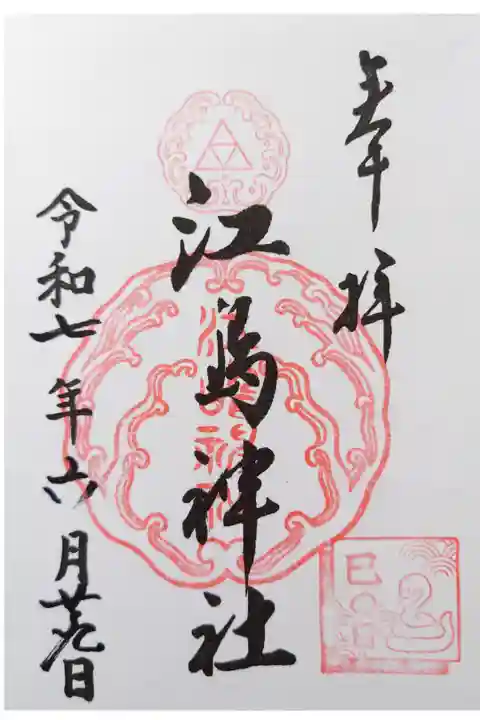 奉拝
江島神社
令和七年六月廿九日
巳